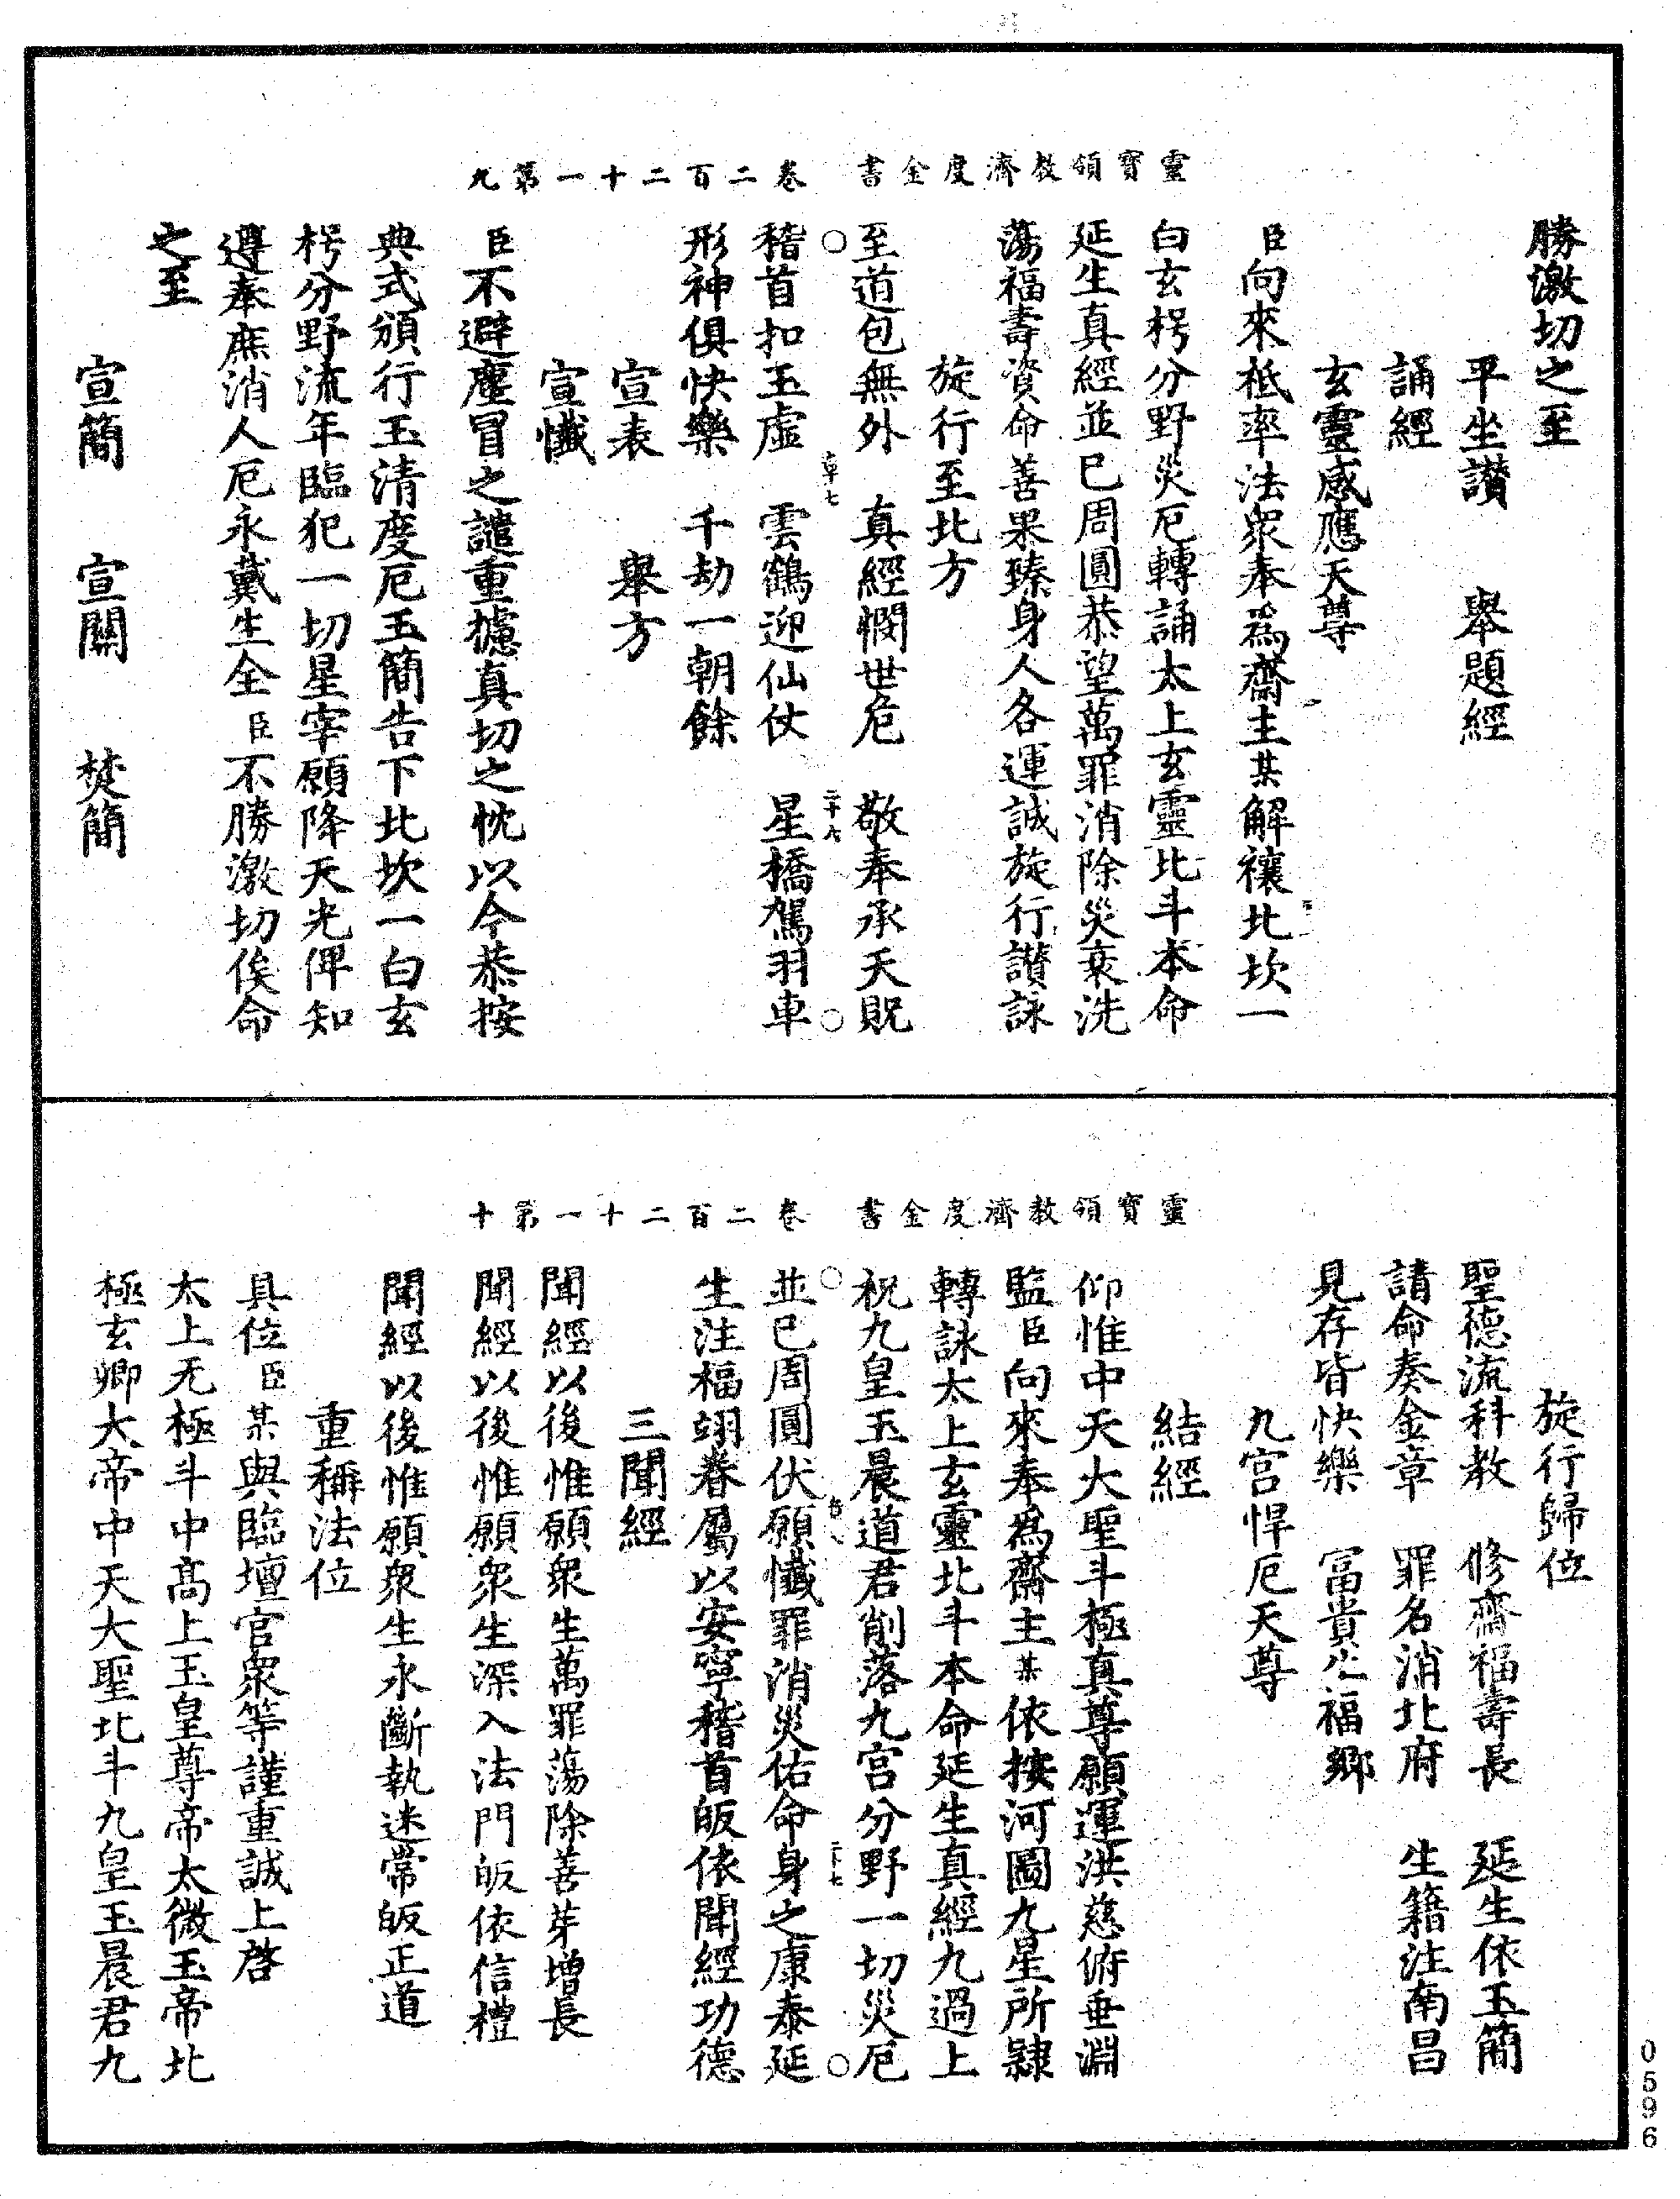 靈寶領教濟度金書 卷二百二十一第九
勝激切之至
平坐讚 舉題經
誦經
玄靈感應天尊
臣向來祗率法衆奉爲齋主某解禳北坎一
白玄枵分野災厄轉誦太上玄靈北斗本命
延生真經並已周圓恭望萬罪消除災衰洗
蕩福壽資命善果臻身人各運誠旋行讚詠
旋行至北方
至道包無外 真經憫世危 敬奉承天貺
稽首扣玉虛 雲鶴迎仙仗 星橋駕羽車
形神俱快樂 千劫一朝餘
宣表 舉方
宣懺
臣不避塵冒之譴重攄真切之忱以今恭按
典式頒行玉清度厄玉簡告下北坎一白玄
枵分野流年臨犯一切星宰願降天光俾知
遵奉庶消人厄永戴生全臣不勝激切俟命
之至
宣簡 宣關 焚簡
靈寶領教濟度金書 卷二百二十一第十
旋行歸位
聖德流科教 修齋福壽長 延生依玉簡
請命奏金章 罪名消北府 生籍注南昌
見存皆快樂 富貴必福鄉
九宮悍厄天尊
結經
仰惟中天大聖斗極真尊願運洪慈俯垂淵
監臣向來奉爲齋主某依按河圖九星所隸
轉詠太上玄靈北斗本命延生真經九過上
祝九皇玉晨道君削落九宮分野一切災厄
並已周圓伏願懺罪消災佑命身之康泰延
生注福翊眷屬以安寧稽首皈依聞經功德
三聞經
聞經以後惟願衆生萬罪蕩除善芽增長
聞經以後惟願衆生深入法門皈依信禮
聞經以後惟願衆生永斷執迷常皈正道
重稱法位
具位臣某與臨壇官衆等謹重誠上啓
太上无極斗中高上玉皇尊帝太微玉帝北
極玄卿大帝中天大聖北斗九皇玉晨君九
0596